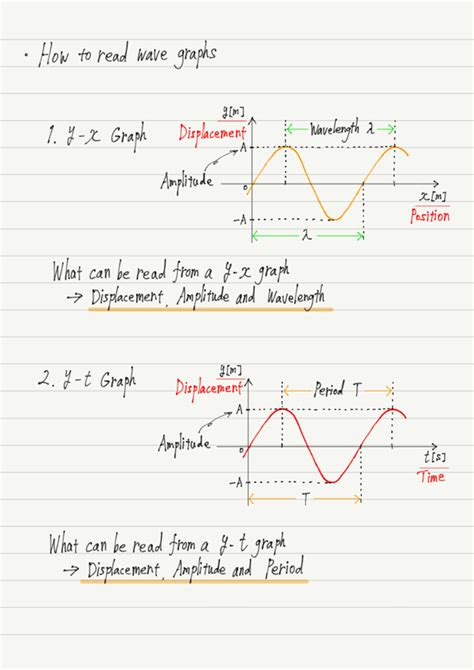 ・How to read wave graphs
1. y-x Graph
y[m]
Displacement
Wavelength λ
A
Amplitude
0
x[m]
Position
-A
λ
What can be read from a y-x graph
→ Displacement, Amplitude and Wavelength
2. y-t Graph
y[m]
Displacement
Period T
A
Amplitude
0
t[s]
Time
-A
T
What can be read from a y-t graph
→ Displacement, Amplitude and Period